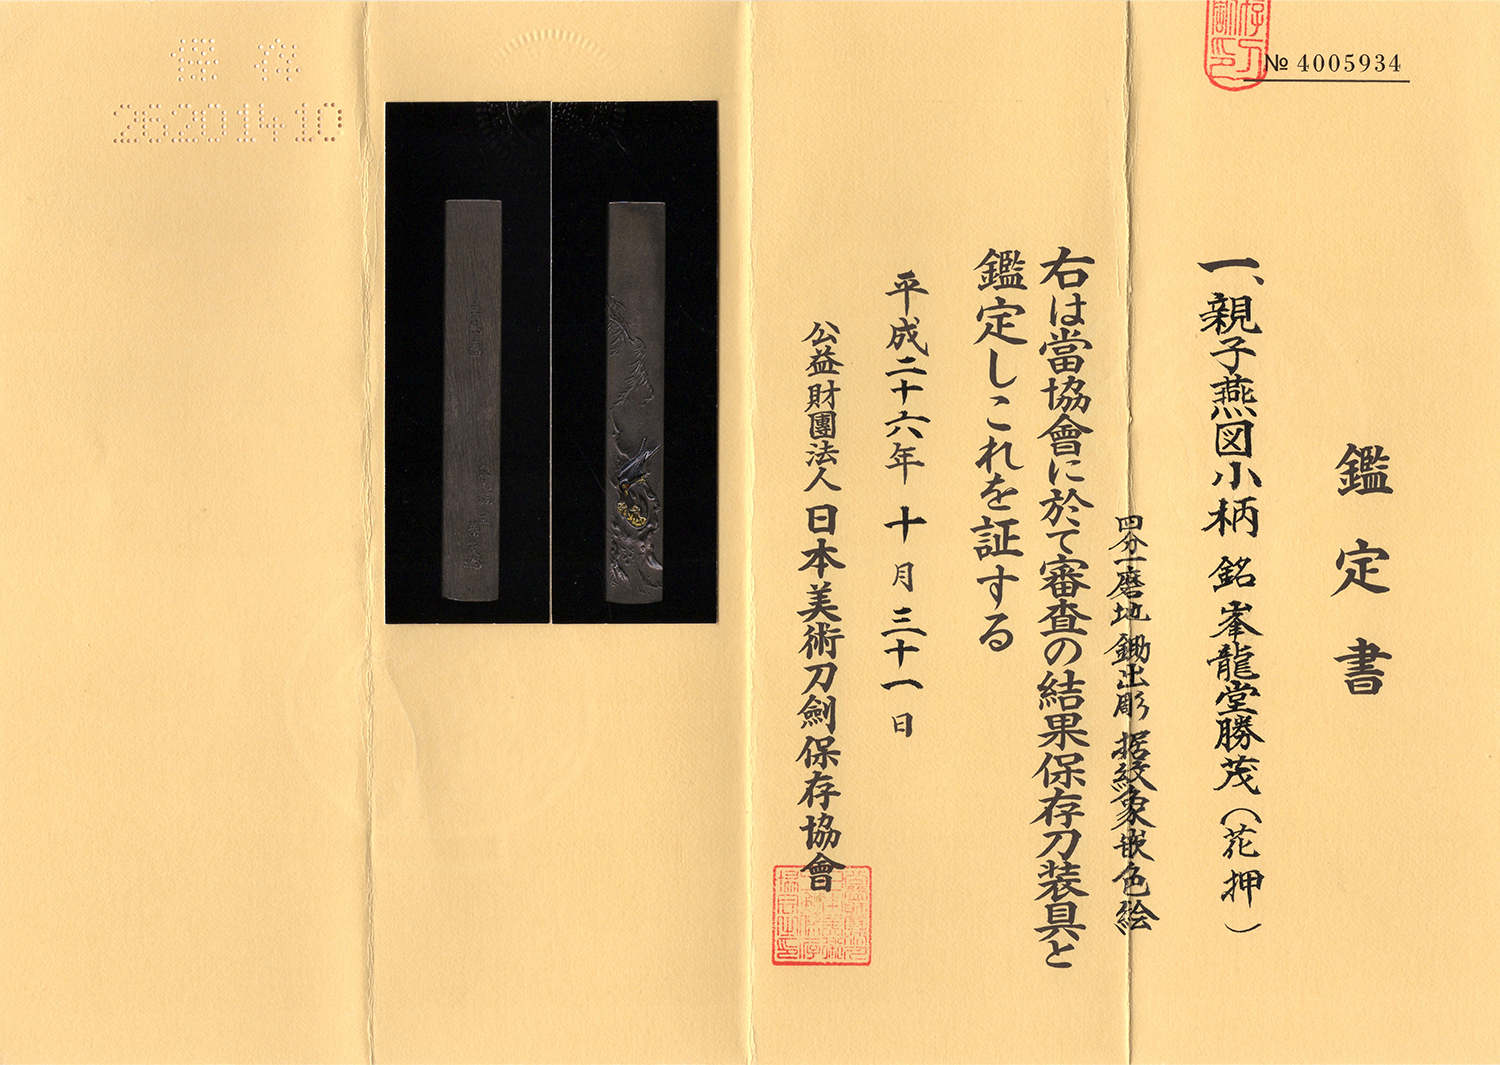 № 4005934
鑑定書
一、親子燕図小柄 銘 峯龍堂勝茂(花押)
四分一磨地 鋤出彫 据紋象嵌色絵
右は當協會に於て審査の結果保存刀装具と
鑑定しこれを証する
平成二十六年 十月 三十一日
公益財團法人 日本美術刀劍保存協會
保存
26201410